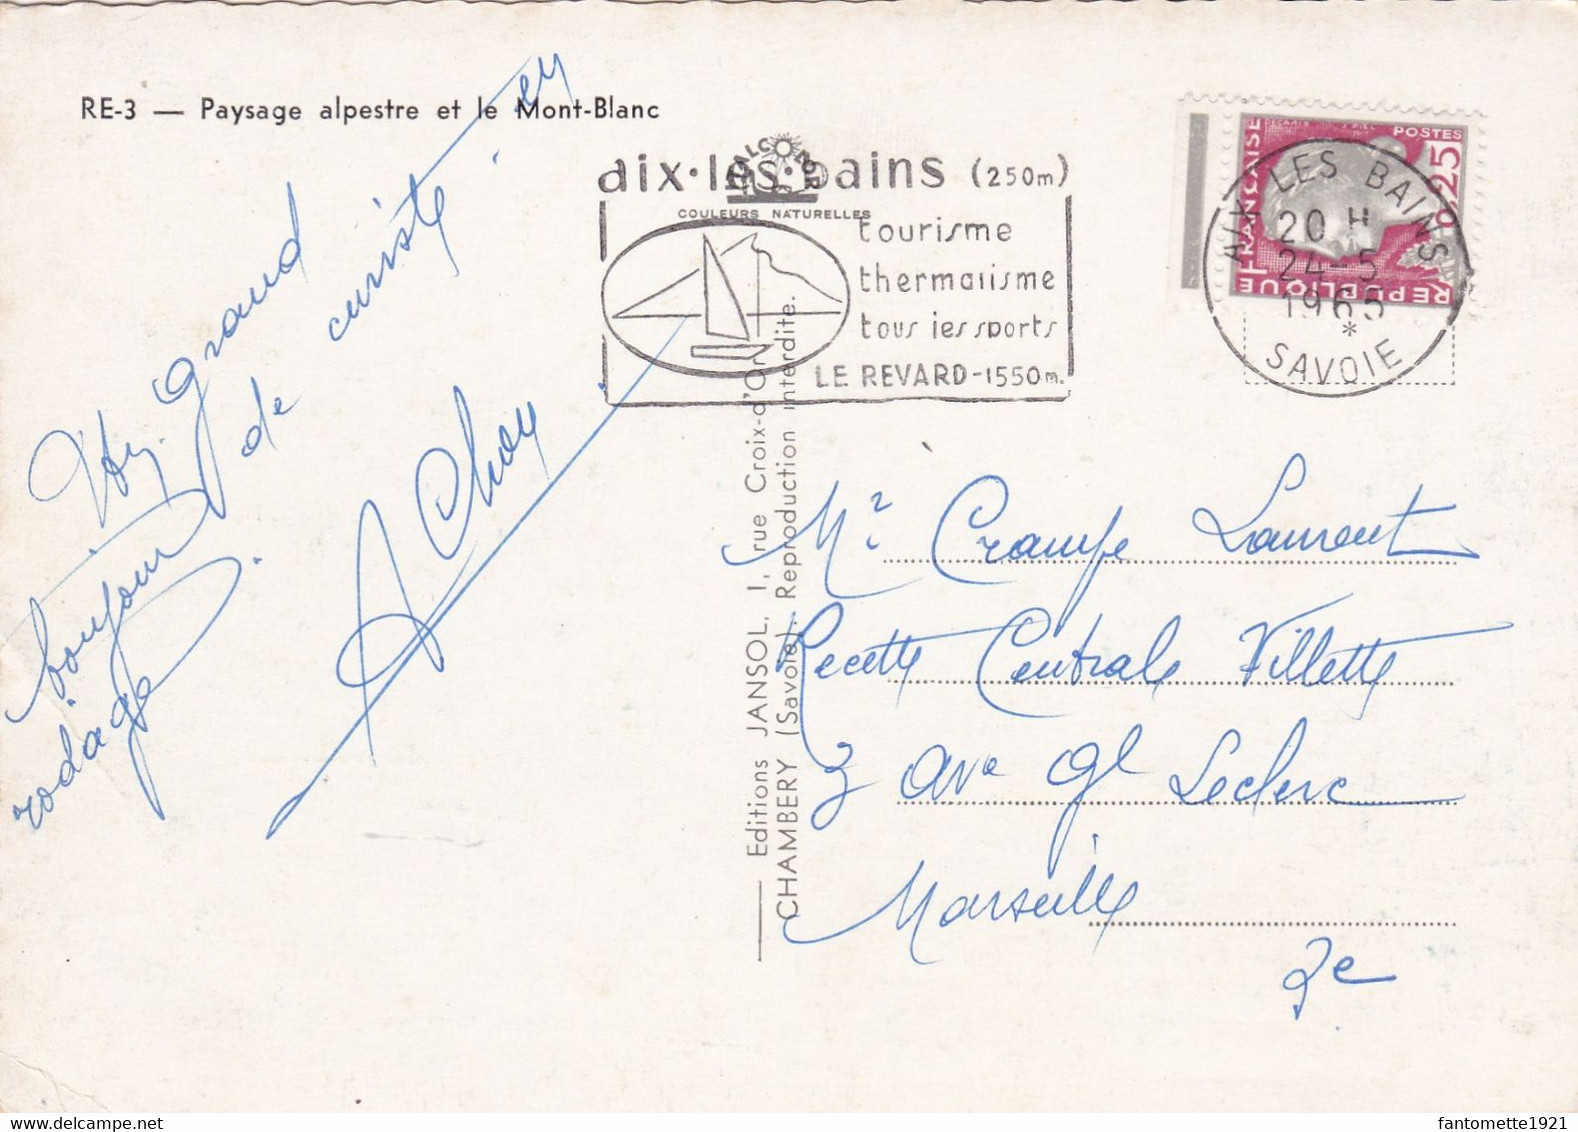 RE-3 — Paysage alpestre et le Mont-Blanc
aix·les·bains (250m)
COULEURS NATURELLES
tourisme
thermalisme
tous les sports
LE REVARD-1550m.
REPUBLIQUE FRANÇAISE
POSTES
0,25
AIX LES BAINS
20 H
24-5
1965
*
SAVOIE
grand
bonjour de curiste en
rodage.
Editions JANSOL, 1, rue Croix-d'Or
CHAMBERY (Savoie). Reproduction interdite.
Mr Crampe Laurent
Recette Centrale Villette
3 ave Gl Leclerc
Marseille
3e
fantomette1921